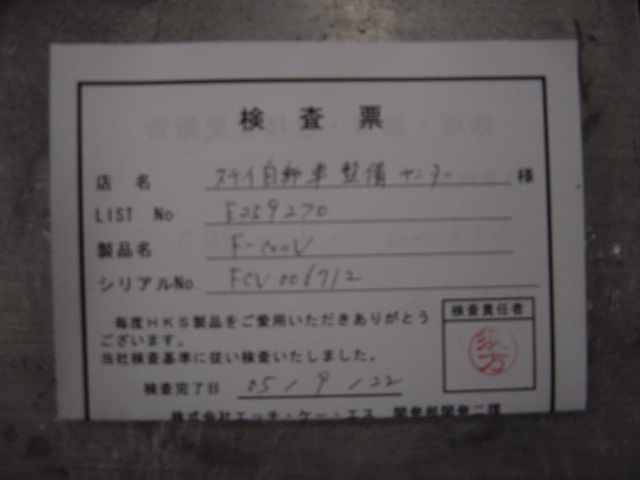 検査票
店名 スケイ自動車整備センター 様
LIST No F059270
製品名 F-conV
シリアルNo FCV006712
毎度HKS製品をご愛用いただきありがとう
ございます。
当社検査基準に従い検査いたしました。
検査責任者
検査完了日 05/9/22
株式会社エッチ・ケー・エス 開発部開発二課